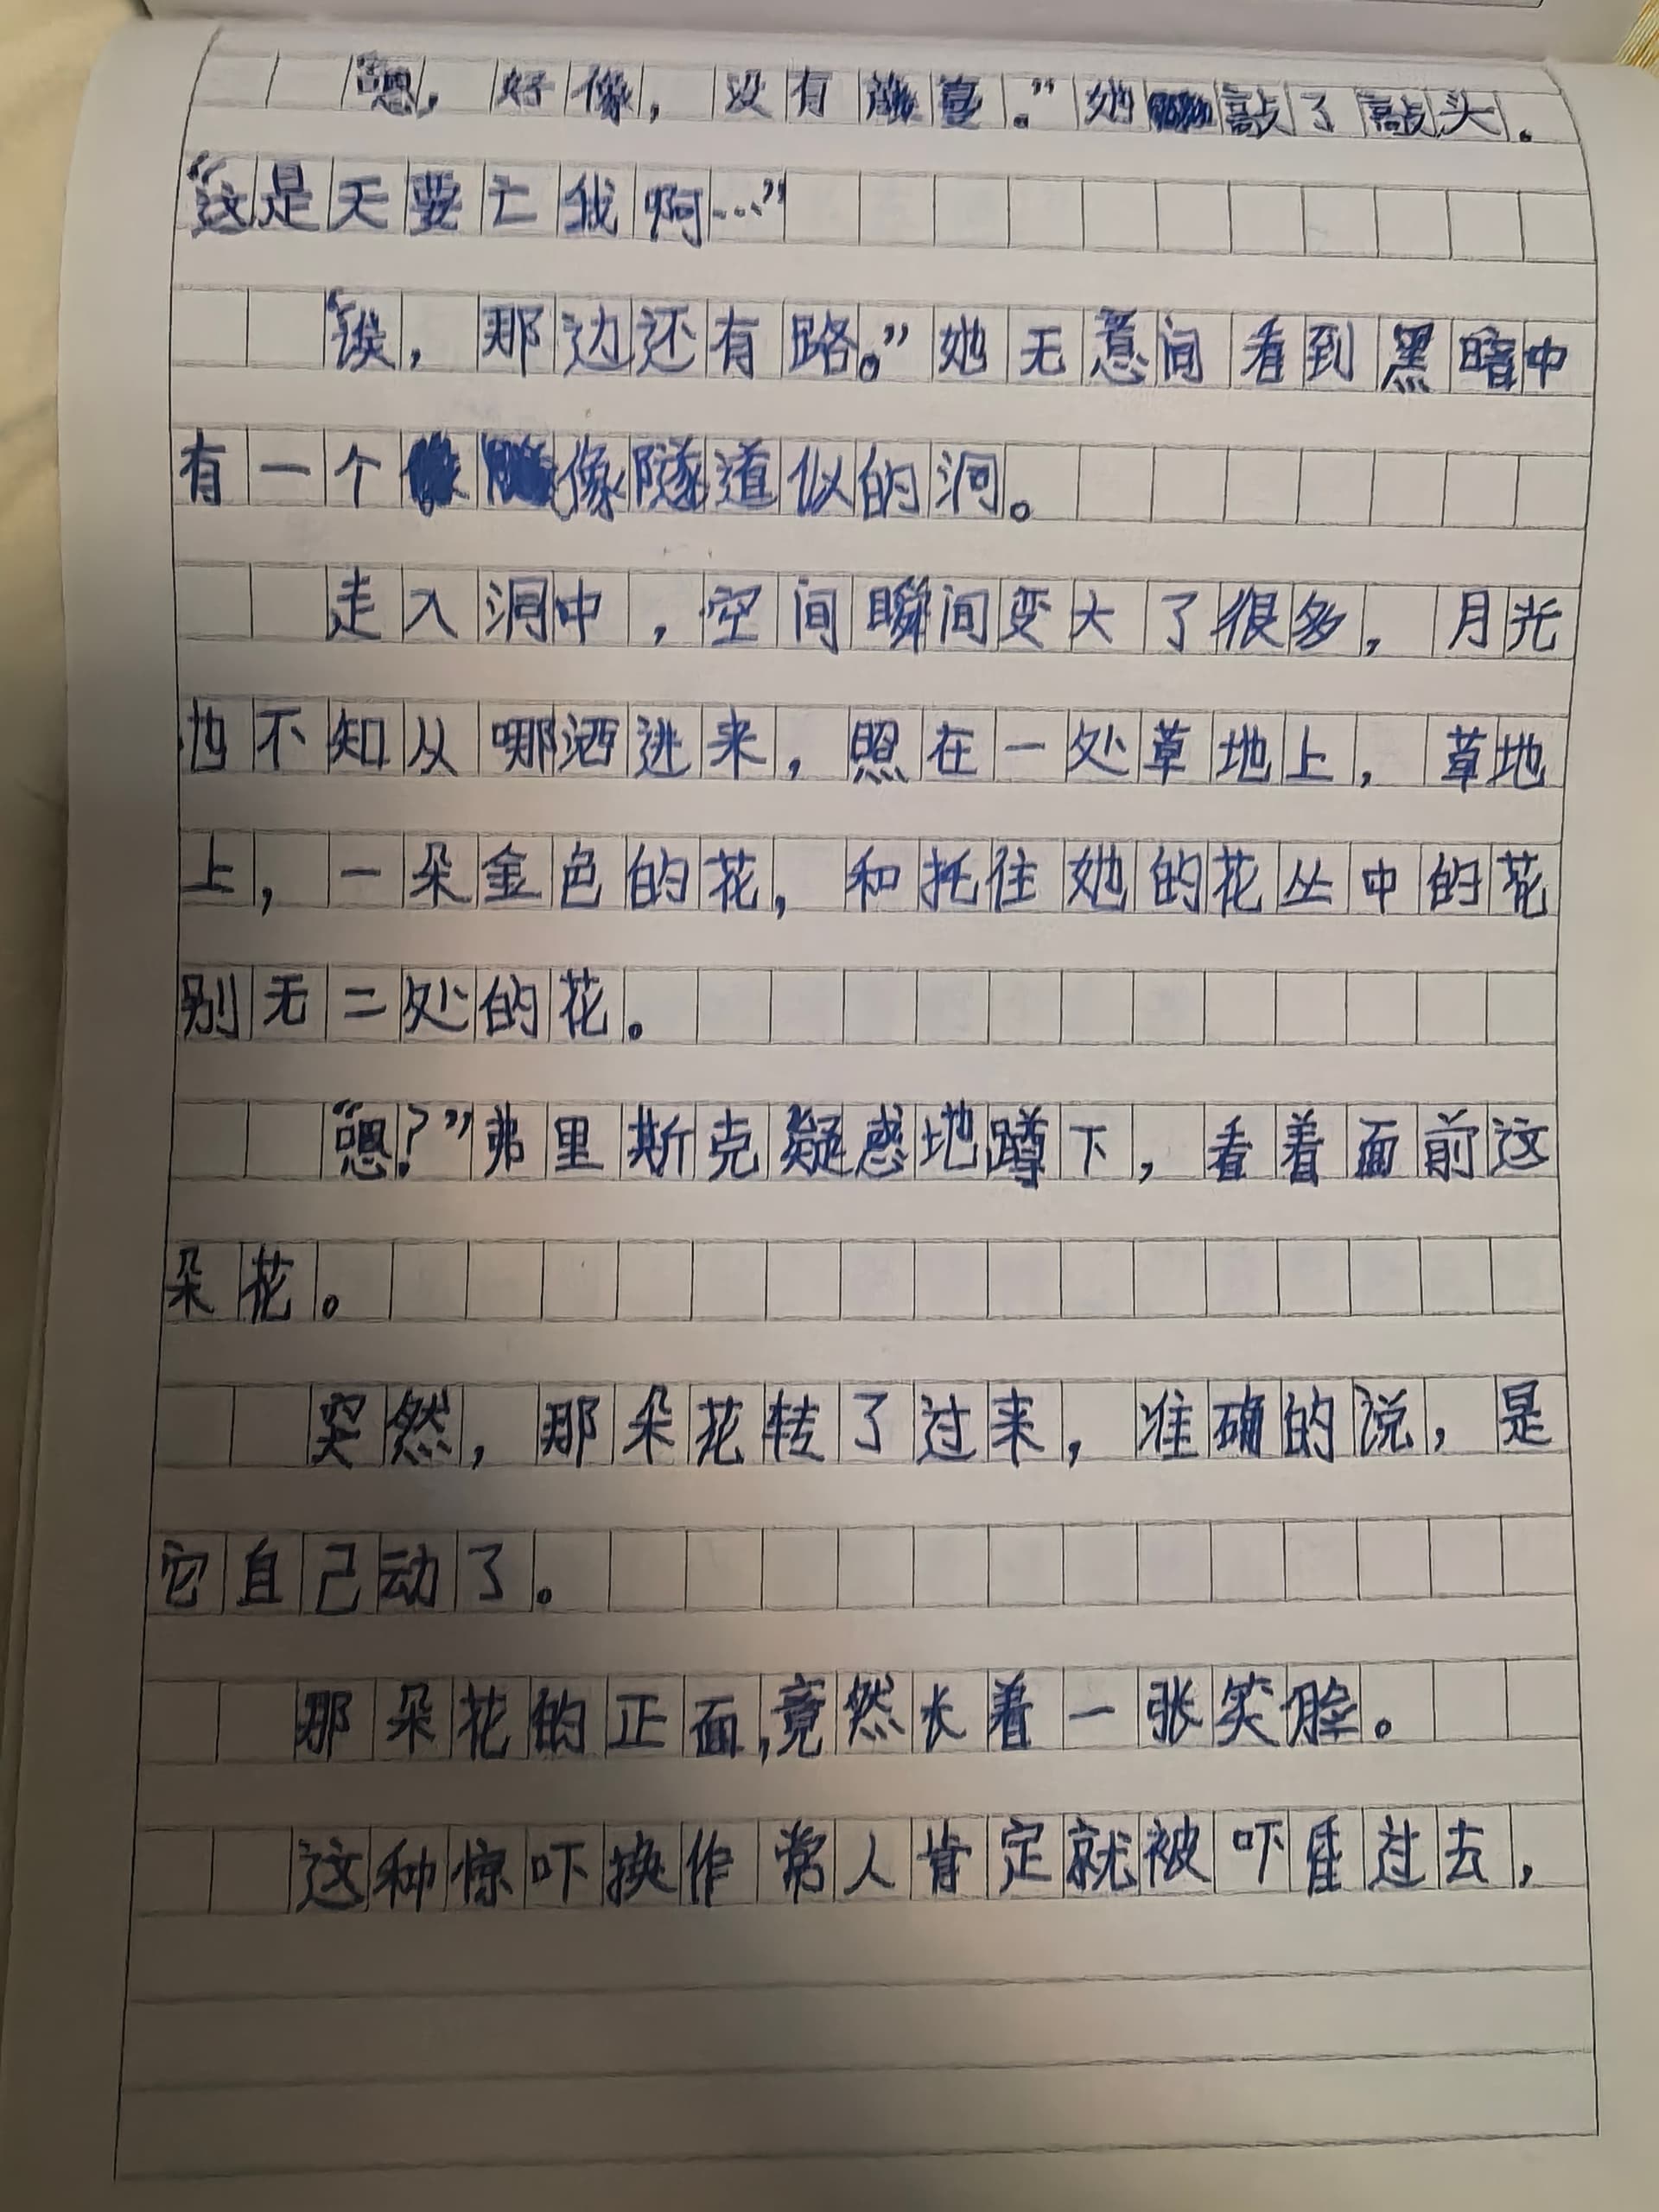 “嗯，好像，没有 。”她敲了敲头。
“这是天要亡我啊…”
“诶，那边还有路。”她无意间看到黑暗中
有一个像隧道似的洞。
走入洞中，空间瞬间变大了很多，月光
也不知从哪洒进来，照在一处草地上，草地
上，一朵金色的花，和托住她的花丛中的花
别无二处的花。
“嗯？”弗里斯克疑惑地蹲下，看着面前这
朵花。
突然，那朵花转了过来，准确的说，是
它自己动了。
那朵花的正面，竟然长着一张笑脸。
这种惊吓换作常人肯定就被吓昏过去，